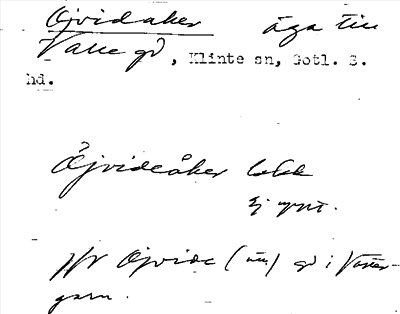 Ojvidaker äga till
Valle gd, Klinte sn, Gotl. S.
hd.
Öjvideåker lokk
Ej mynt.
Jfr Öjvide (nu) gd i Väster-
garn.